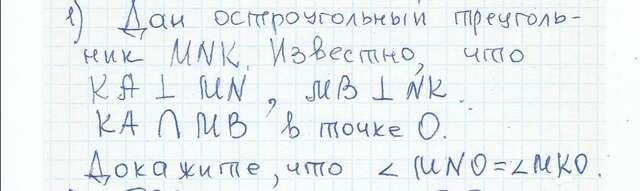 1) Дан остроугольный треуголь-
ник MNK. Известно, что
KA ⊥ MN, MB ⊥ NK.
KA ∩ MB в точке O.
Докажите, что ∠MNO=∠MKO.